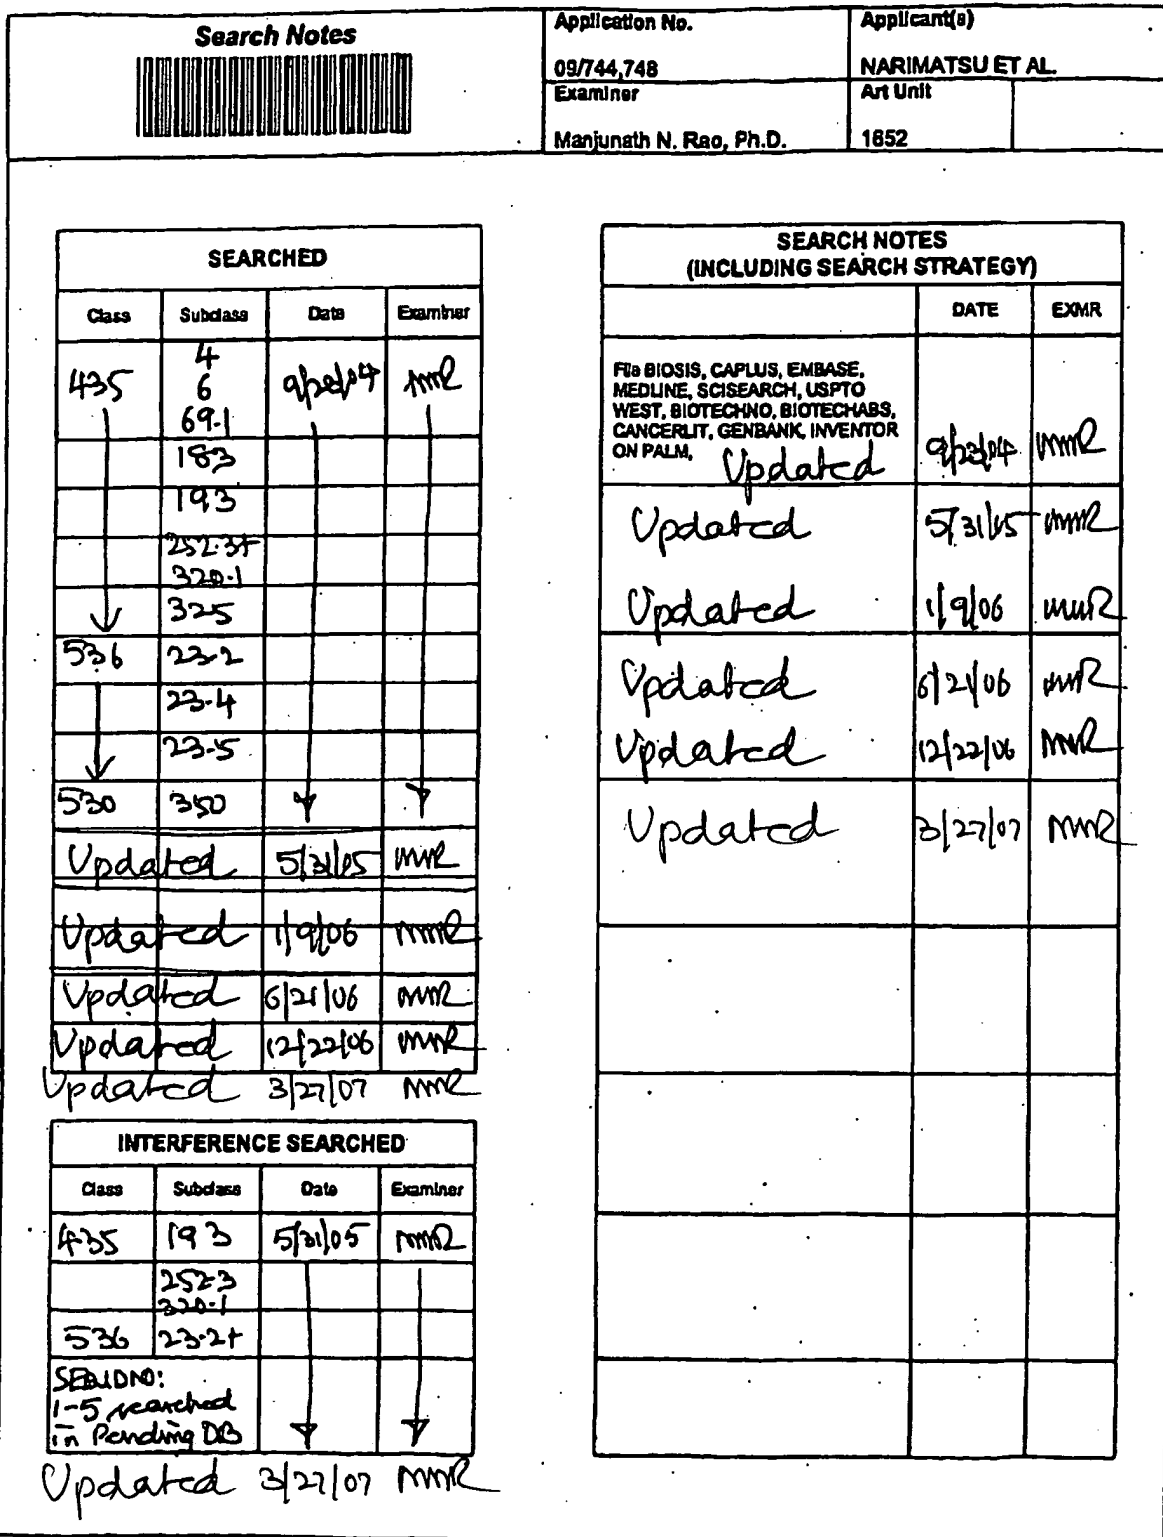 Search Notes
Application No.
Applicant(s)
09/744,748
NARIMATSU ET AL.
Examiner
Art Unit
Manjunath N. Rao, Ph.D.
1652
SEARCHED
Class Subclass Date Examiner
4
435 6 MNR
69.1
183
193
252.3+
320.1
325
536 23.2
23.4
23.5
530 350
Updated 5/31/05 MNR
Updated 1/9/06 MNR
Updated 6/21/06 MNR
Updated 12/22/06 MNR
Updated 3/27/07 MNR
INTERFERENCE SEARCHED
Class Subclass Date Examiner
435 193 5/31/05 MNR
252.3
320.1
536 23.2+
SEQ ID NO:
1-5 searched
in Pending DB
Updated 3/27/07 MNR
SEARCH NOTES
(INCLUDING SEARCH STRATEGY)
DATE EXMR
File BIOSIS, CAPLUS, EMBASE,
MEDLINE, SCISEARCH, USPTO
WEST, BIOTECHNO, BIOTECHABS,
CANCERLIT, GENBANK, INVENTOR
ON PALM,
Updated 9/23/04 MNR
Updated 5/31/05 MNR
Updated 1/9/06 MNR
Updated 6/21/06 MNR
Updated 12/22/06 MNR
Updated 3/27/07 MNR